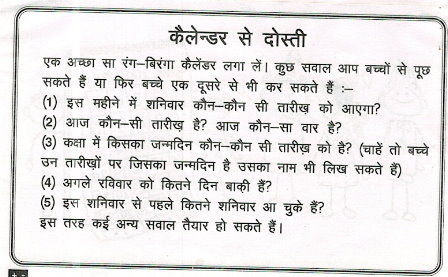 कैलेन्डर से दोस्ती
एक अच्छा सा रंग–बिरंगा कैलेंडर लगा लें। कुछ सवाल आप बच्चों से पूछ
सकते हैं या फिर बच्चे एक दूसरे से भी कर सकते हैं :–
(1) इस महीने में शनिवार कौन–कौन सी तारीख़ को आएगा?
(2) आज कौन–सी तारीख़ है? आज कौन–सा वार है?
(3) कक्षा में किसका जन्मदिन कौन–कौन सी तारीख़ को है? (चाहें तो बच्चे
उन तारीख़ों पर जिसका जन्मदिन है उसका नाम भी लिख सकते हैं)
(4) अगले रविवार को कितने दिन बाकी हैं?
(5) इस शनिवार से पहले कितने शनिवार आ चुके हैं?
इस तरह कई अन्य सवाल तैयार हो सकते हैं।